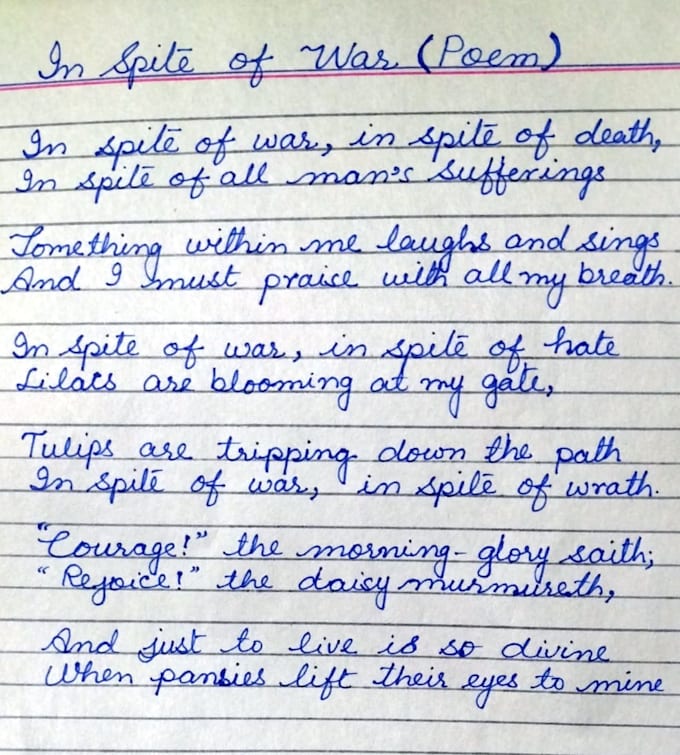 In Spite of War (Poem)
In spite of war, in spite of death,
In spite of all man's sufferings
Something within me laughs and sings
And I must praise with all my breath.
In spite of war, in spite of hate
Lilacs are blooming at my gate,
Tulips are tripping down the path
In spite of war, in spite of wrath.
"Courage!" the morning-glory saith;
"Rejoice!" the daisy murmureth,
And just to live is so divine
When pansies lift their eyes to mine